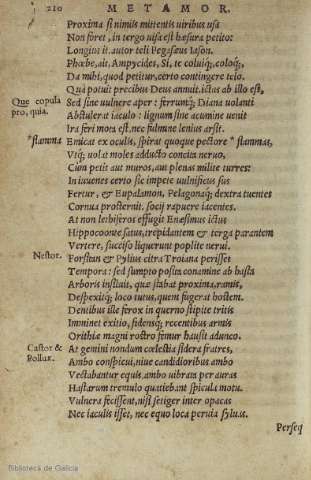 210 METAMOR.
Proxima si nimiis mittentis viribus usa
Non foret, in tergo uisa est hæsura petito:
Longius it. autor teli Pegasæus Iason.
Phœbe, ait, Ampycides, Si, te coluiq́;, coloq́;,
Da mihi, quod petitur, certo contingere telo.
Quà potuit precibus Deus annuit. ictus ab illo est,
Que copula pro, quia.
Sed sine uulnere aper: ferrum q́; Diana uolanti
Abstulerat iaculo: lignum sine acumine uenit
Ira feri mota est. nec fulmine lenius arsit.
*flamma
Emicat ex oculis, spirat quoque pectore *flammas,
Vtq́; uolat moles adducto concita neruo,
Cùm petit aut muros, aut plenas milite turres:
In iuuenes certo sic impete uulnificus sus
Fertur, & Eupalamon, Pelagonaq́; dextra tuentes
Cornua prosternit. socij rapuere iacentes.
At non lethiferos effugit Enesimus ictus
Hippocoonte satus, trepidantem & terga parantem
Vertere, succiso liquerunt poplite nerui.
Nestor.
Forsitan & Pylius citra Troiana perisset
Tempora: sed sumpto posita conamine ab hasta
Arboris insiluit, quæ stabat proxima, ramis,
Despexitq́; loco tutus, quem fugerat hostem.
Dentibus ille ferox in querno stipite tritis
Imminet exitio, fidensq́; recentibus armis
Orithiæ magni rostro femur hausit adunco.
Castor & Pollux.
At gemini nondum cœlestia sidera fratres,
Ambo conspicui, niue candidioribus ambo
Vectabantur equis. ambo uibrata per auras
Hastarum tremulo quatiebant spicula motu.
Vulnera fecissent, nisi setiger inter opacas
Nec iaculis isset, nec equo loca peruia syluas.
Perseq
Biblioteca de Galicia